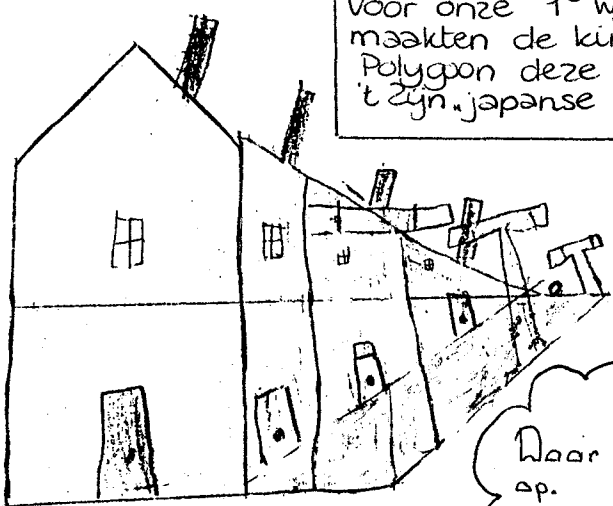 voor onze 1e
maakten de
Polygoon deze
't zijn „japanse
Daar
op.